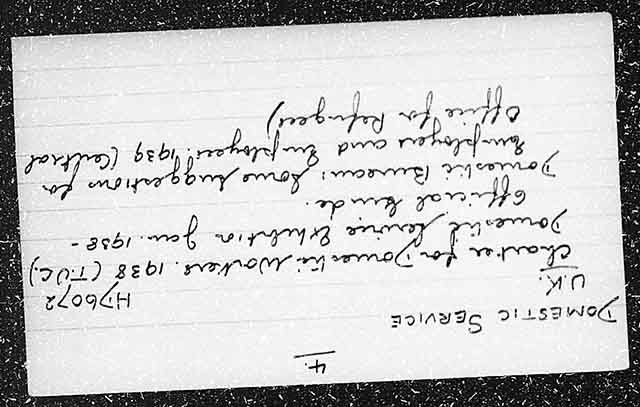 4.
DOMESTIC SERVICE
U.K. HD6072
Charter for Domestic Workers. 1938 (T.U.C.)
Domestic Service Exhibition Jan. 1938 -
Official Guide.
Domestic Bureau: Some suggestions for
Employers and Employees. 1939 (Central
Office for Refugees)